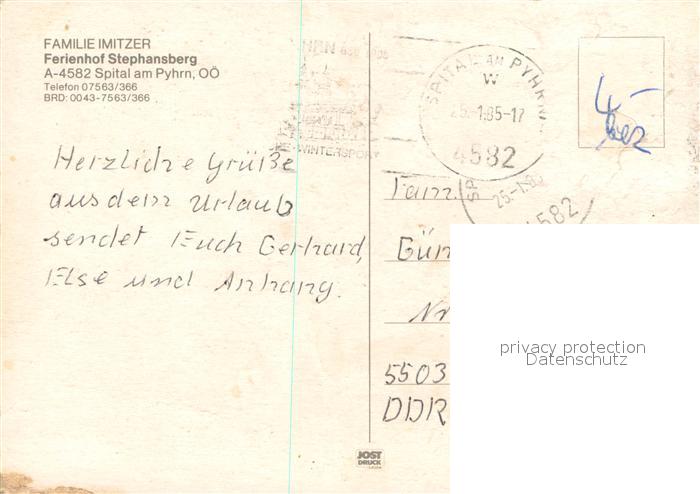 FAMILIE IMITZER
Ferienhof Stephansberg
A-4582 Spital am Pyhrn, OÖ
Telefon 07563/366
BRD: 0043-7563/366
Herzliche Grüße
aus dem Urlaub
sendet Euch Gerhard,
Else und Anhang.
WINTERSPORT
SPITAL AM PYHRN
W
25.-1.85-17
4582
SP
25.-1.85
4582
4,-
Fam.
Gün
Nr
5503
DDR
JOST
DRUCK
privacy protection
Datenschutz